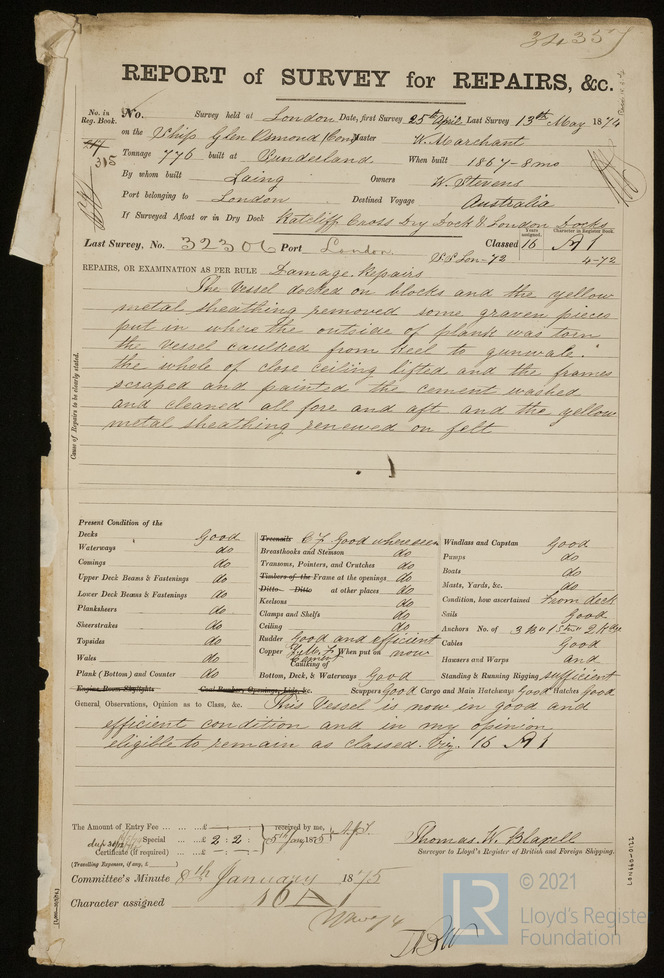 34357
REPORT of SURVEY for REPAIRS, &c.
No. in Reg. Book. No. Survey held at London Date, first Survey 25th April Last Survey 13th May 1874
315 on the Ship Glen Osmond (Com) Master W. Marchant
Tonnage 776 built at Sunderland When built 1867-8 mo
By whom built Laing Owners W. Stevens
Port belonging to London Destined Voyage Australia
If Surveyed Afloat or in Dry Dock Ratcliff Cross Dry Dock & London Docks
Last Survey, No. 32306 Port London. Classed Years assigned. 16 Character in Register Book. A1
SS Lon-72 4-72
REPAIRS, OR EXAMINATION AS PER RULE Damage Repairs
Cause of Repairs to be clearly stated.
The Vessel docked on blocks and the yellow
metal sheathing removed some graven pieces
put in where the outside of plank was torn
the vessel caulked from keel to gunwale.
the whole of close ceiling lifted and the frames
scraped and painted the cement washed
and cleaned all fore and aft and the yellow
metal sheathing renewed on felt
Present Condition of the
Decks Good
Waterways do
Comings do
Upper Deck Beams & Fastenings do
Lower Deck Beams & Fastenings do
Planksheers do
Sheerstrakes do
Topsides do
Wales do
Plank (Bottom) and Counter do
Engine Room Skylights Coal Bunkers, Openings, Lids, &c.
Treenails Good where seen
Breasthooks and Stemson do
Transoms, Pointers, and Crutches do
Timbers of the Frame at the openings do
Ditto Ditto at other places do
Keelsons do
Clamps and Shelfs do
Ceiling do
Rudder Good and efficient
Copper Y.M. When put on now
Caulking of
Bottom, Deck, & Waterways Good
Scuppers Good Cargo and Main Hatchways Good Hatches Good
Windlass and Capstan Good
Pumps do
Boats do
Masts, Yards, &c. do
Condition, how ascertained from deck
Sails Good
Anchors No. of 3 B" 1 St" 2 Kge
Cables Good
Hausers and Warps and
Standing & Running Rigging sufficient
General Observations, Opinion as to Class, &c. This Vessel is now in good and
efficient condition and in my opinion
eligible to remain as classed. Viz. 16 A1
The Amount of Entry Fee ... ... ... £ : : received by me,
Special ... ... £ 2 : 2 : 5th Jany 1875
Certificate (if required) ... £ : :
(Travelling Expenses, if any, £ )
Thomas W. Blagell
Surveyor to Lloyd's Register of British and Foreign Shipping.
Committee's Minute 8th January 1875
Character assigned 16 A1
LON660-0122
© 2021
LR
Lloyd's Register
Foundation